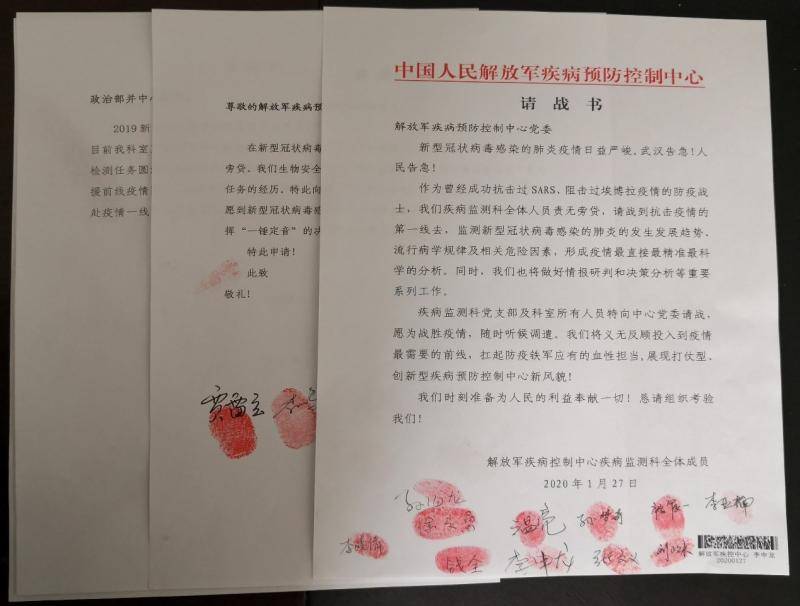 政治部并中心
2019新
目前我科室
检测任务圆
援前线疫情
赴疫情一线
尊敬的解放军疾病预
在新型冠状病毒
旁贷。我们生物安全
任务的经历。特此向
愿到新型冠状病毒感
挥“一锤定音”的决
特此申请！
此致
敬礼！
贾雷立
中国人民解放军疾病预防控制中心
请战书
解放军疾病预防控制中心党委
新型冠状病毒感染的肺炎疫情日益严峻。武汉告急！人
民告急！
作为曾经成功抗击过SARS、阻击过埃博拉疫情的防疫战
士，我们疾病监测科全体人员责无旁贷，请战到抗击疫情的
第一线去，监测新型冠状病毒感染的肺炎的发生发展趋势、
流行病学规律及相关危险因素，形成疫情最直接最精准最科
学的分析。同时，我们也将做好情报研判和决策分析等重要
系列工作。
疾病监测科党支部及科室所有人员特向中心党委请战，
愿为战胜疫情，随时听候调遣。我们将义无反顾投入到疫情
最需要的前线，扛起防疫铁军应有的血性担当，展现打仗型、
创新型疾病预防控制中心新风貌！
我们时刻准备为人民的利益奉献一切！恳请组织考验
我们！
解放军疾病控制中心疾病监测科全体成员
2020年1月27日
温亮
李亚楠
李申龙
解放军疾控中心 李申龙
20200127